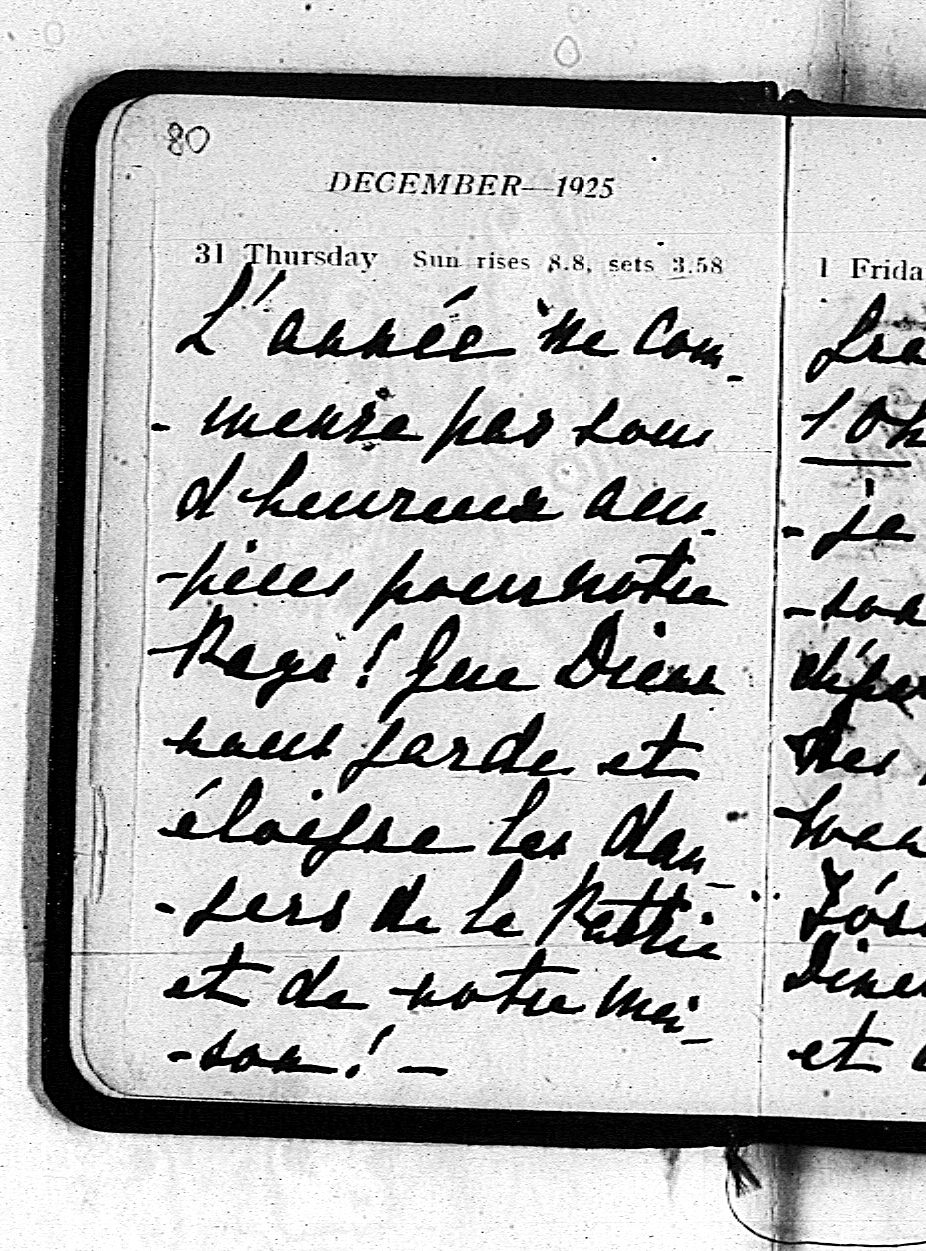 80
DECEMBER—1925
31 Thursday Sun rises 8.8, sets 3.58
L'année ne com-
-mence pas sous
d'heureux aus-
-pices pour notre
Pays! Que Dieu
nous garde et
éloigne les dan-
-gers de la Patrie
et de notre mai-
-son! —
1 Frida
10h
- je
et